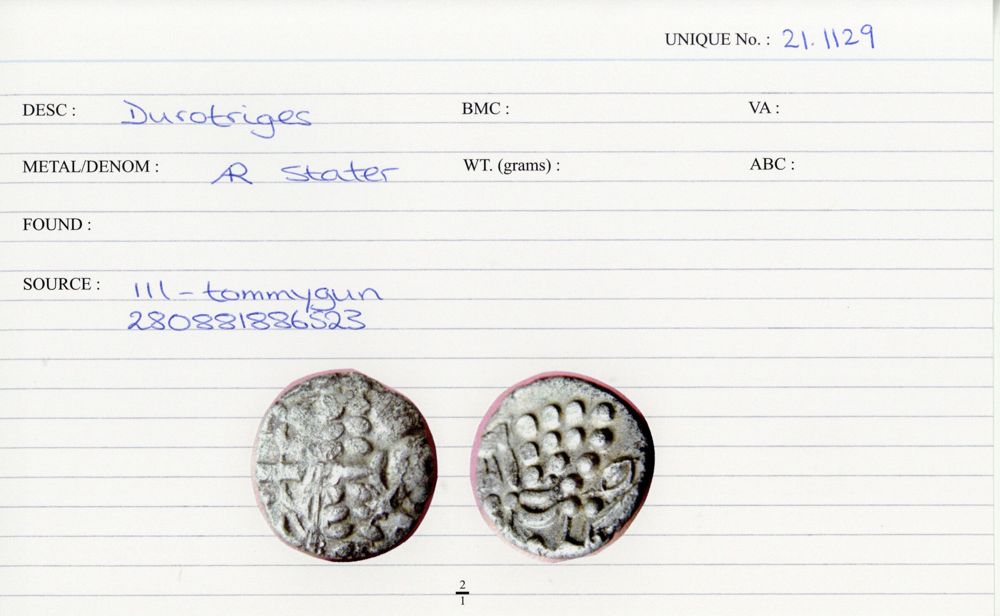 UNIQUE No. : 21.1129
DESC : Durotriges BMC : VA :
METAL/DENOM : AR Stater WT. (grams) : ABC :
FOUND :
SOURCE : 111 - tommygun
280881886523
2
1